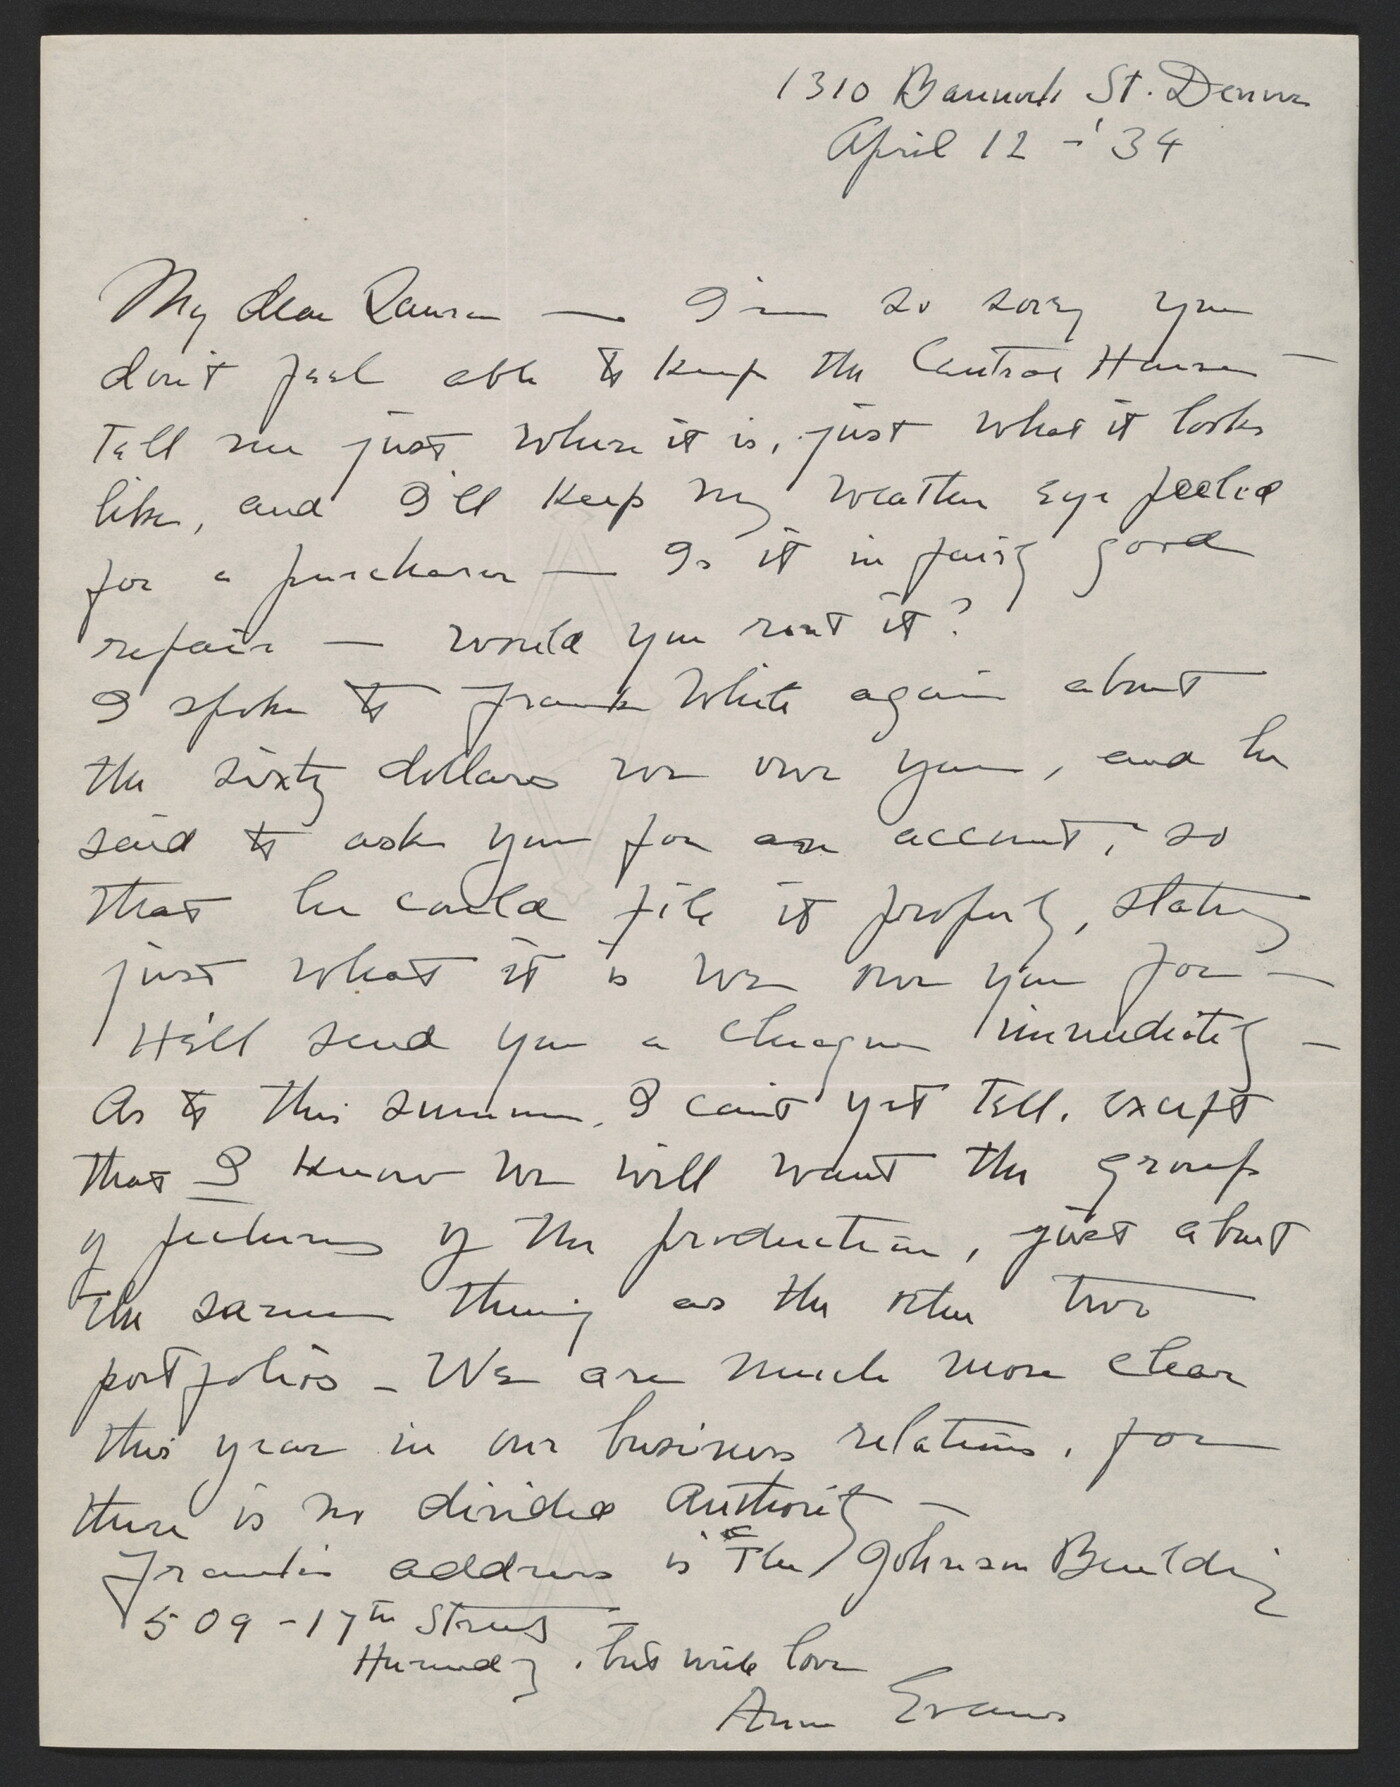 1310 Bannock St. Denver
April 12 - '34
My dear Laura — I'm so sorry you
don't feel able to keep the Central House —
Tell me just where it is, just what it looks
like, and I'll keep my weather eye peeled
for a purchaser — Is it in fairly good
repair — would you rent it?
I spoke to Frank White again about
the sixty dollars we owe you, and he
said to ask you for an account, so
that he could file it properly, stating
just what it is we owe you for —
He'll send you a cheque immediately —
As to this summer, I can't yet tell, except
that I know we will want the group
of pictures of the production, just about
the same thing as the other two
portfolios - We are much more clear
this year in our business relations, for
there is no divided Authority —
Frank's address is c The Johnson Building
509 - 17th Street —
Hurriedly, but with love
Anne Evans